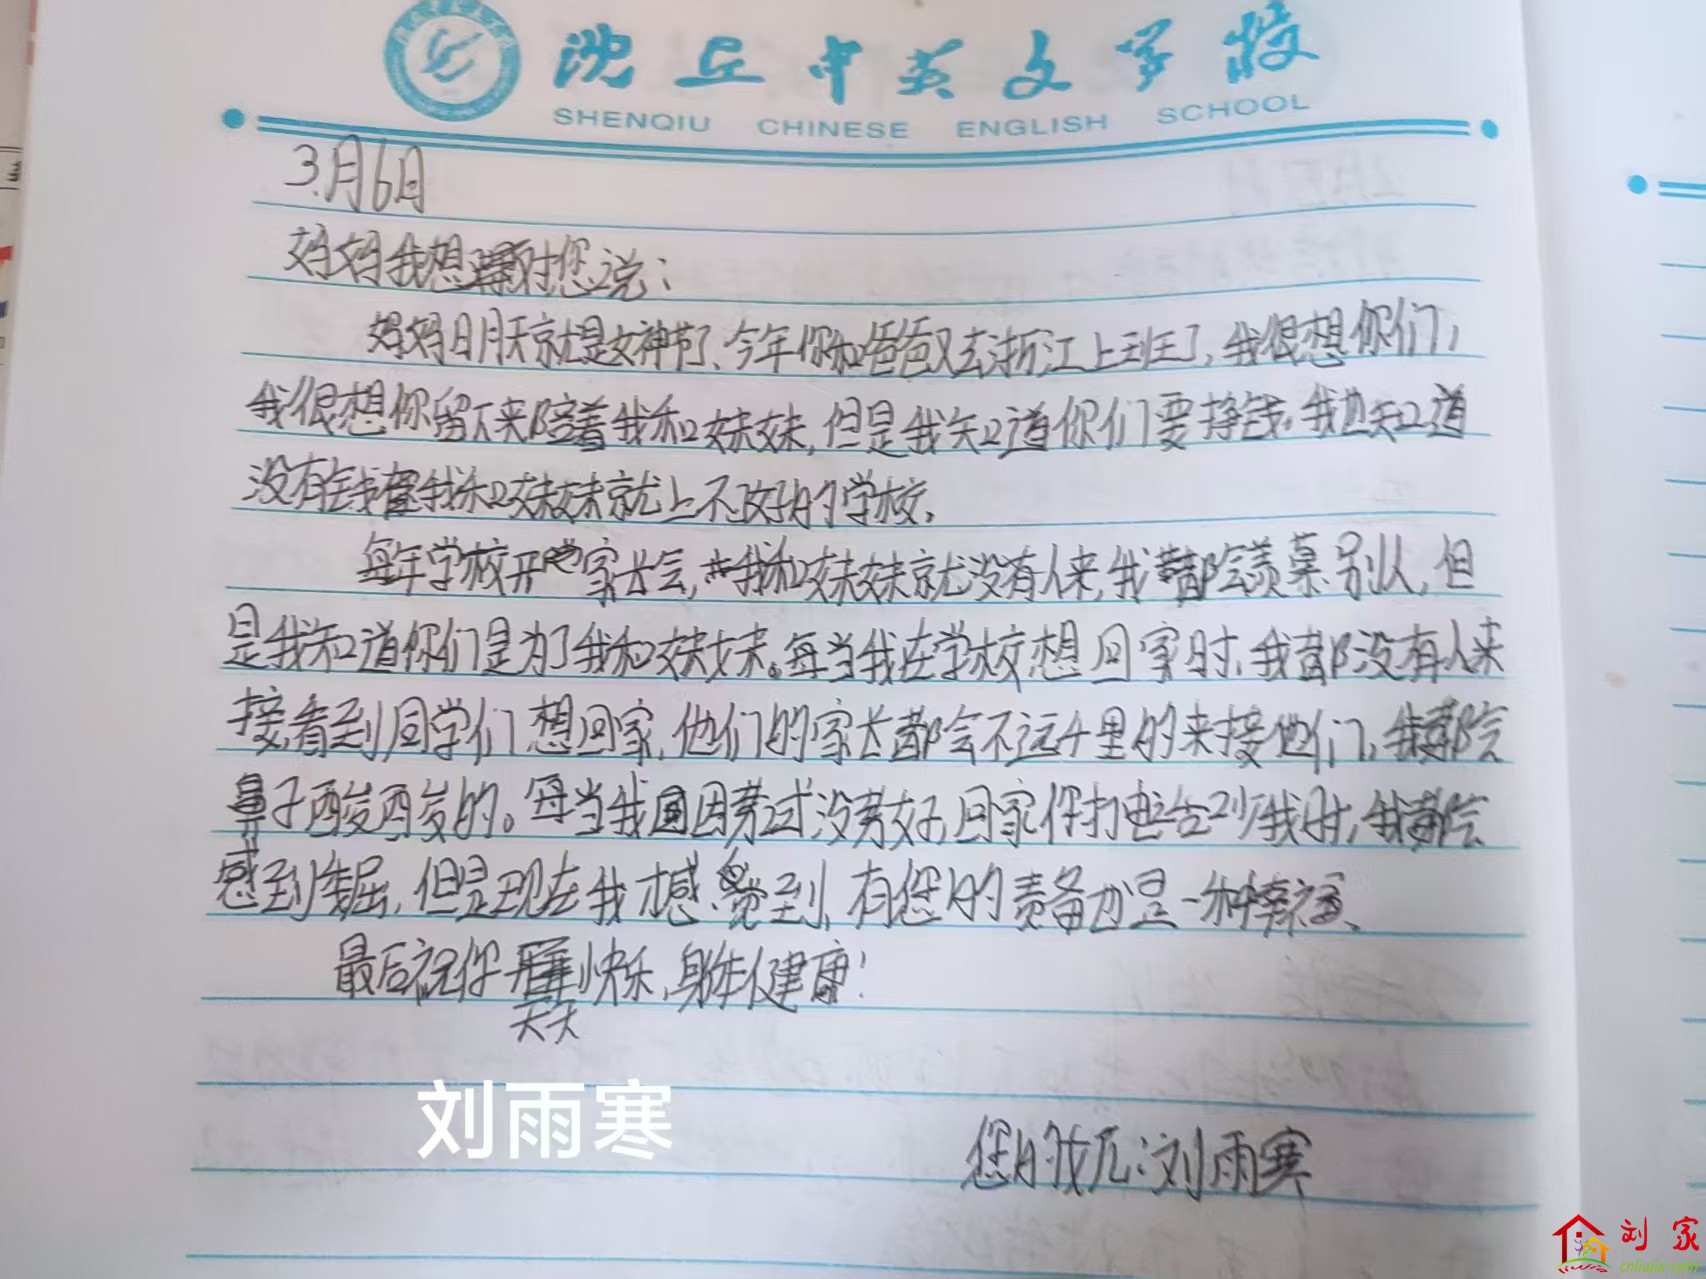 沈丘中英文学校
SHENQIU CHINESE ENGLISH SCHOOL
3月6日
妈妈我想对您说：
妈妈明天就是女神节了、今年你和爸爸又去浙江上班了，我很想你们，
我很想你留下来陪着我和妹妹，但是我知道你们要挣钱，我也知道
没有钱我和妹妹就上不了好的学校，
每年学校开家长会，我和妹妹就没有人来，我都会羡慕别人，但
是我知道你们是为了我和妹妹。每当我在学校想回家时，我都没有人来
接，看到同学们想回家，他们的家长都会不远千里的来接他们，我都会
鼻子酸酸的。每当我因考试没考好，回家你打电话到我时，我都会
感到委屈，但是现在我才感觉到，有您的责备也是一种幸福、
最后祝你天天快乐，身体健康！
刘雨寒
您的女儿：刘雨寒
刘家
cnliujia.com